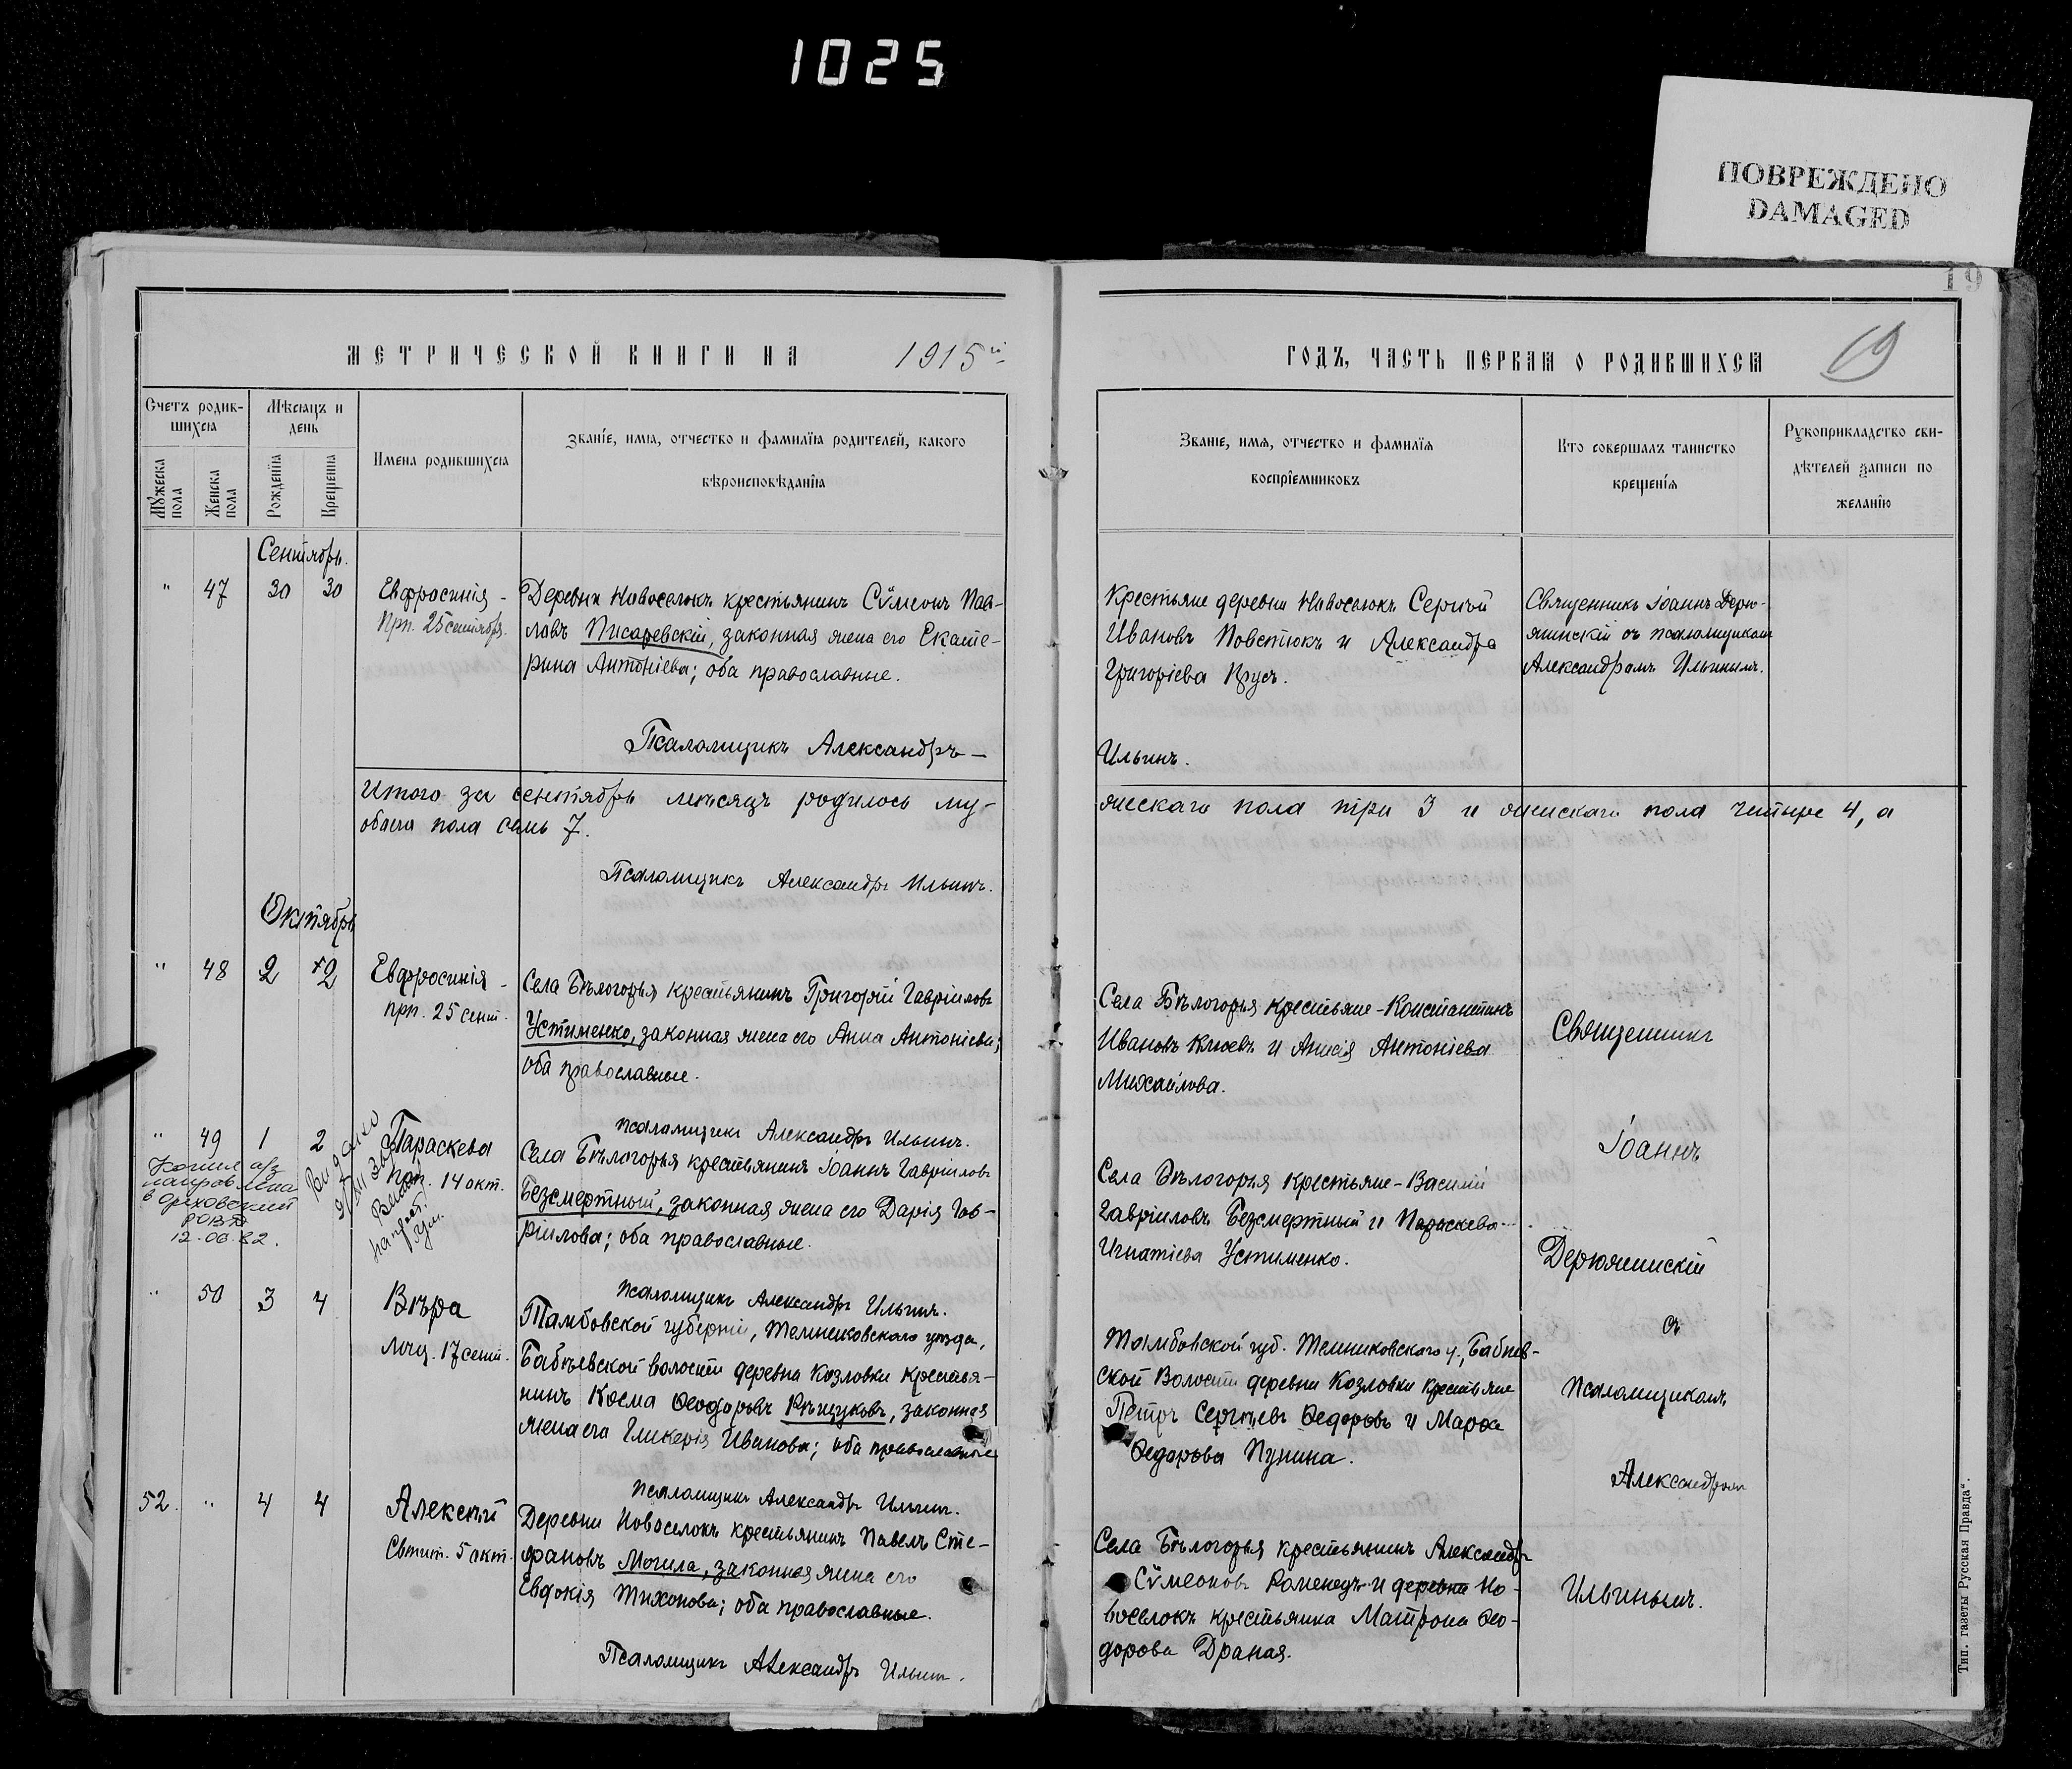 1025
ПОВРЕЖДЕНО
DAMAGED
19
МЕТРИЧЕСКОЙ КНИГИ НА 1915й
Счетъ родив-
шихся
Мѣсяцъ и
день
Мужеска
пола
Женска
пола
Рожденія
Крещенія
Имена родившихся
Званіе, имя, отчество и фамилія родителей, какого
вѣроисповѣданія
Сентябрь.
" 47 30 30
Евфросинія -
Прп. 25 сентября.
Деревни Новоселокъ крестьянинъ Сѵмеонъ Пав-
ловъ Писаревскій, законная жена его Екате-
рина Антоніева; оба православные.
Псаломщикъ Александръ -
Итого за сентябрь мѣсяцъ родилось му-
обоего пола семь 7.
Псаломщикъ Александръ Ильинъ.
Октябрь
" 48 2 2
Евфросинія -
прп. 25 сент.
Села Бѣлогорья крестьянинъ Григорій Гавріиловъ
Устименко, законная жена его Анна Антоніева;
оба православные.
Псаломщикъ Александръ Ильинъ.
" 49 1 2
Параскева
прп. 14 окт.
Копия а/з
направлена
в Ореховский
РОВД
12.06.82.
Села Бѣлогорья крестьянинъ Іоаннъ Гавріиловъ
Безсмертный, законная жена его Дарія Гав-
ріилова; оба православные.
Псаломщикъ Александръ Ильинъ.
" 50 3 4
Вѣра
мчц. 17 сент.
Тамбовской губерніи, Темниковскаго уѣзда,
Бабѣевской волости деревни Козловки крестья-
нинъ Косма Ѳеодоровъ законная
жена его Гликерія Иванова; оба православные
Псаломщикъ Александръ Ильинъ.
52. " 4 4
Алексѣй
Свтит. 5 окт.
Деревни Новоселокъ крестьянинъ Павелъ Сте-
фановъ Могила, законная жена его
Евдокія Тихонова; оба православные.
Псаломщикъ Александръ Ильинъ.
ГОДЪ, ЧАСТЬ ПЕРВАЯ О РОДИВШИХСЯ
19
Званіе, имя, отчество и фамилія
воспріемниковъ
Кто совершалъ таинство
крещенія
Рукоприкладство сви-
дѣтелей записи по
желанію
Крестьяне деревни Новоселокъ Сергѣй
Ивановъ Повстюкъ и Александра
Григоріева Прусъ.
Священникъ Іоаннъ Дерю-
жинскій съ псаломщикомъ
Александромъ Ильинымъ.
Ильинъ.
жескаго пола три 3 и женскаго пола четыре 4, а
Села Бѣлогорья крестьяне - Константинъ
Ивановъ Клюевъ и Анисія Антоніева
Михайлова.
Села Бѣлогорья крестьяне - Василій
Гавріиловъ Безсмертный и Параскева
Игнатіева Устименко.
Тамбовской губ. Темниковскаго у., Бабѣев-
ской Волости деревни Козловки крестьяне
Петръ Сергѣевъ Ѳедоровъ и Марѳа
Ѳедорова Пунина.
Села Бѣлогорья крестьянинъ Александръ
Сѵмеоновъ Роменецъ и деревни Но-
воселокъ крестьянка Матрона Ѳео-
дорова Драная.
Священникъ
Іоаннъ
Дерюжинскій
съ
псаломщикомъ
Александромъ
Ильинымъ.
Тип. газеты Русская Правда".